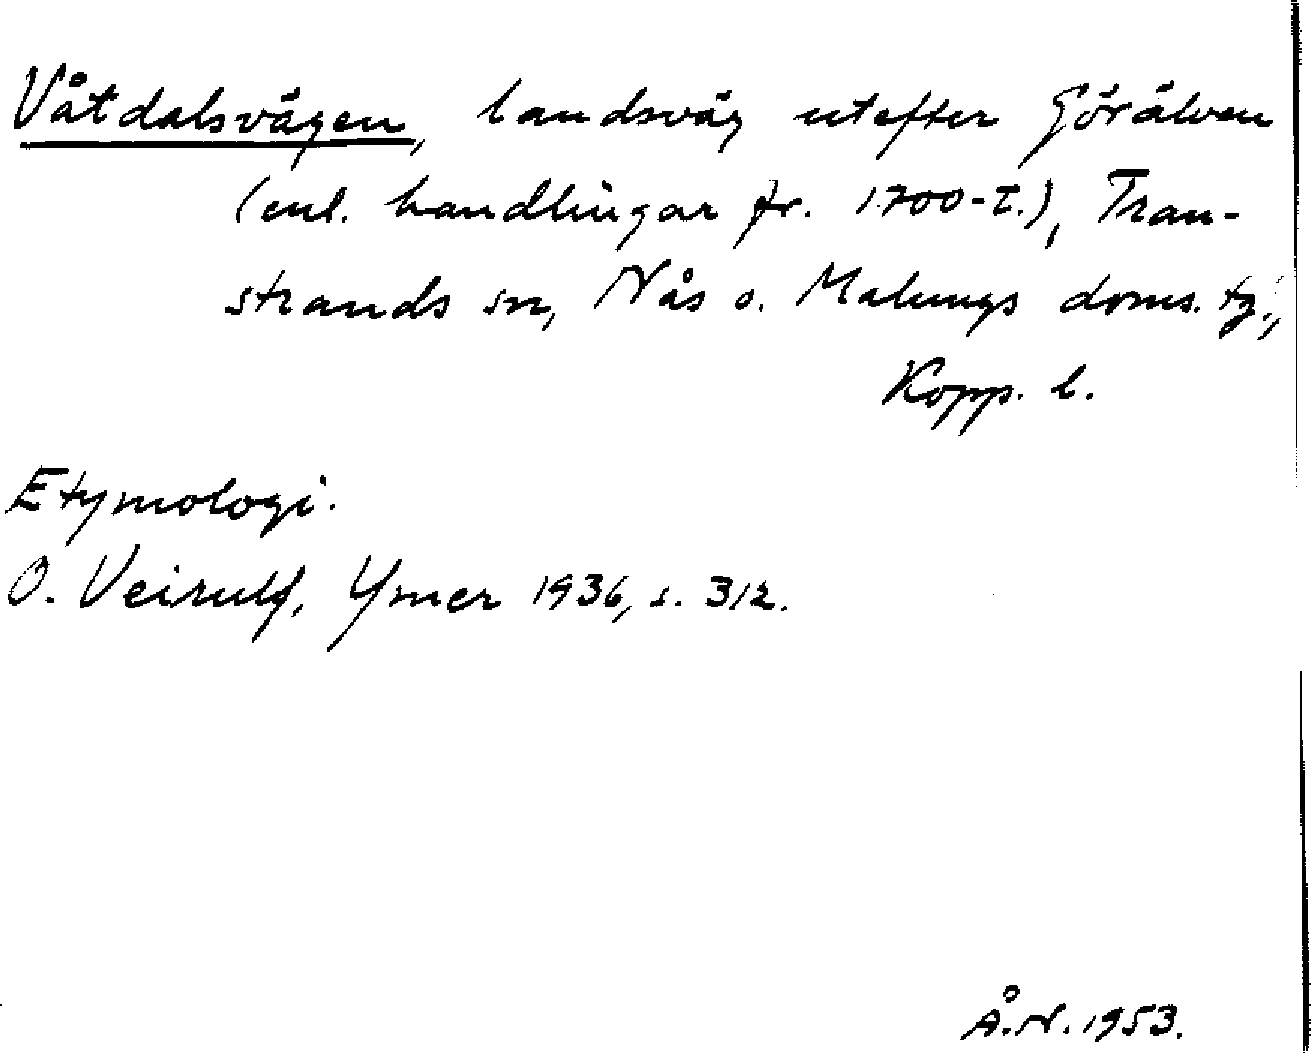 Våtdalsvägen, landsväg utefter Görälven
(enl. handlingar fr. 1700-t.), Tran-
strands sn, Nås o. Malungs doms. tg.,
Kopp. l.
Etymologi.
O. Veirulf, Ymer 1936, s. 312.
Å.N. 1953.